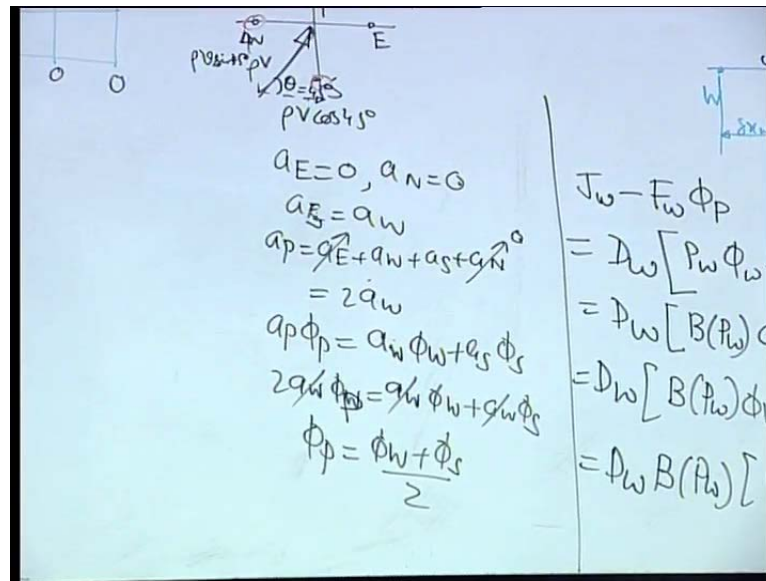 E
ρV
θ=45°
ρV cos45°
O O
a_E=0, a_N=0
a_S=a_W
a_P=a_E+a_W+a_S+a_N 0
=2a_W
a_Pϕ_P=a_Wϕ_W+a_Sϕ_S
2a_Wϕ_P=a_Wϕ_W+a_Wϕ_S
ϕ_P=ϕ_W+ϕ_S
2
W
J_w-F_wϕ_P
=D_w[P_wϕ_w
=D_w[B(P_w)
=D_w[B(P_w)ϕ
=D_wB(P_w)[